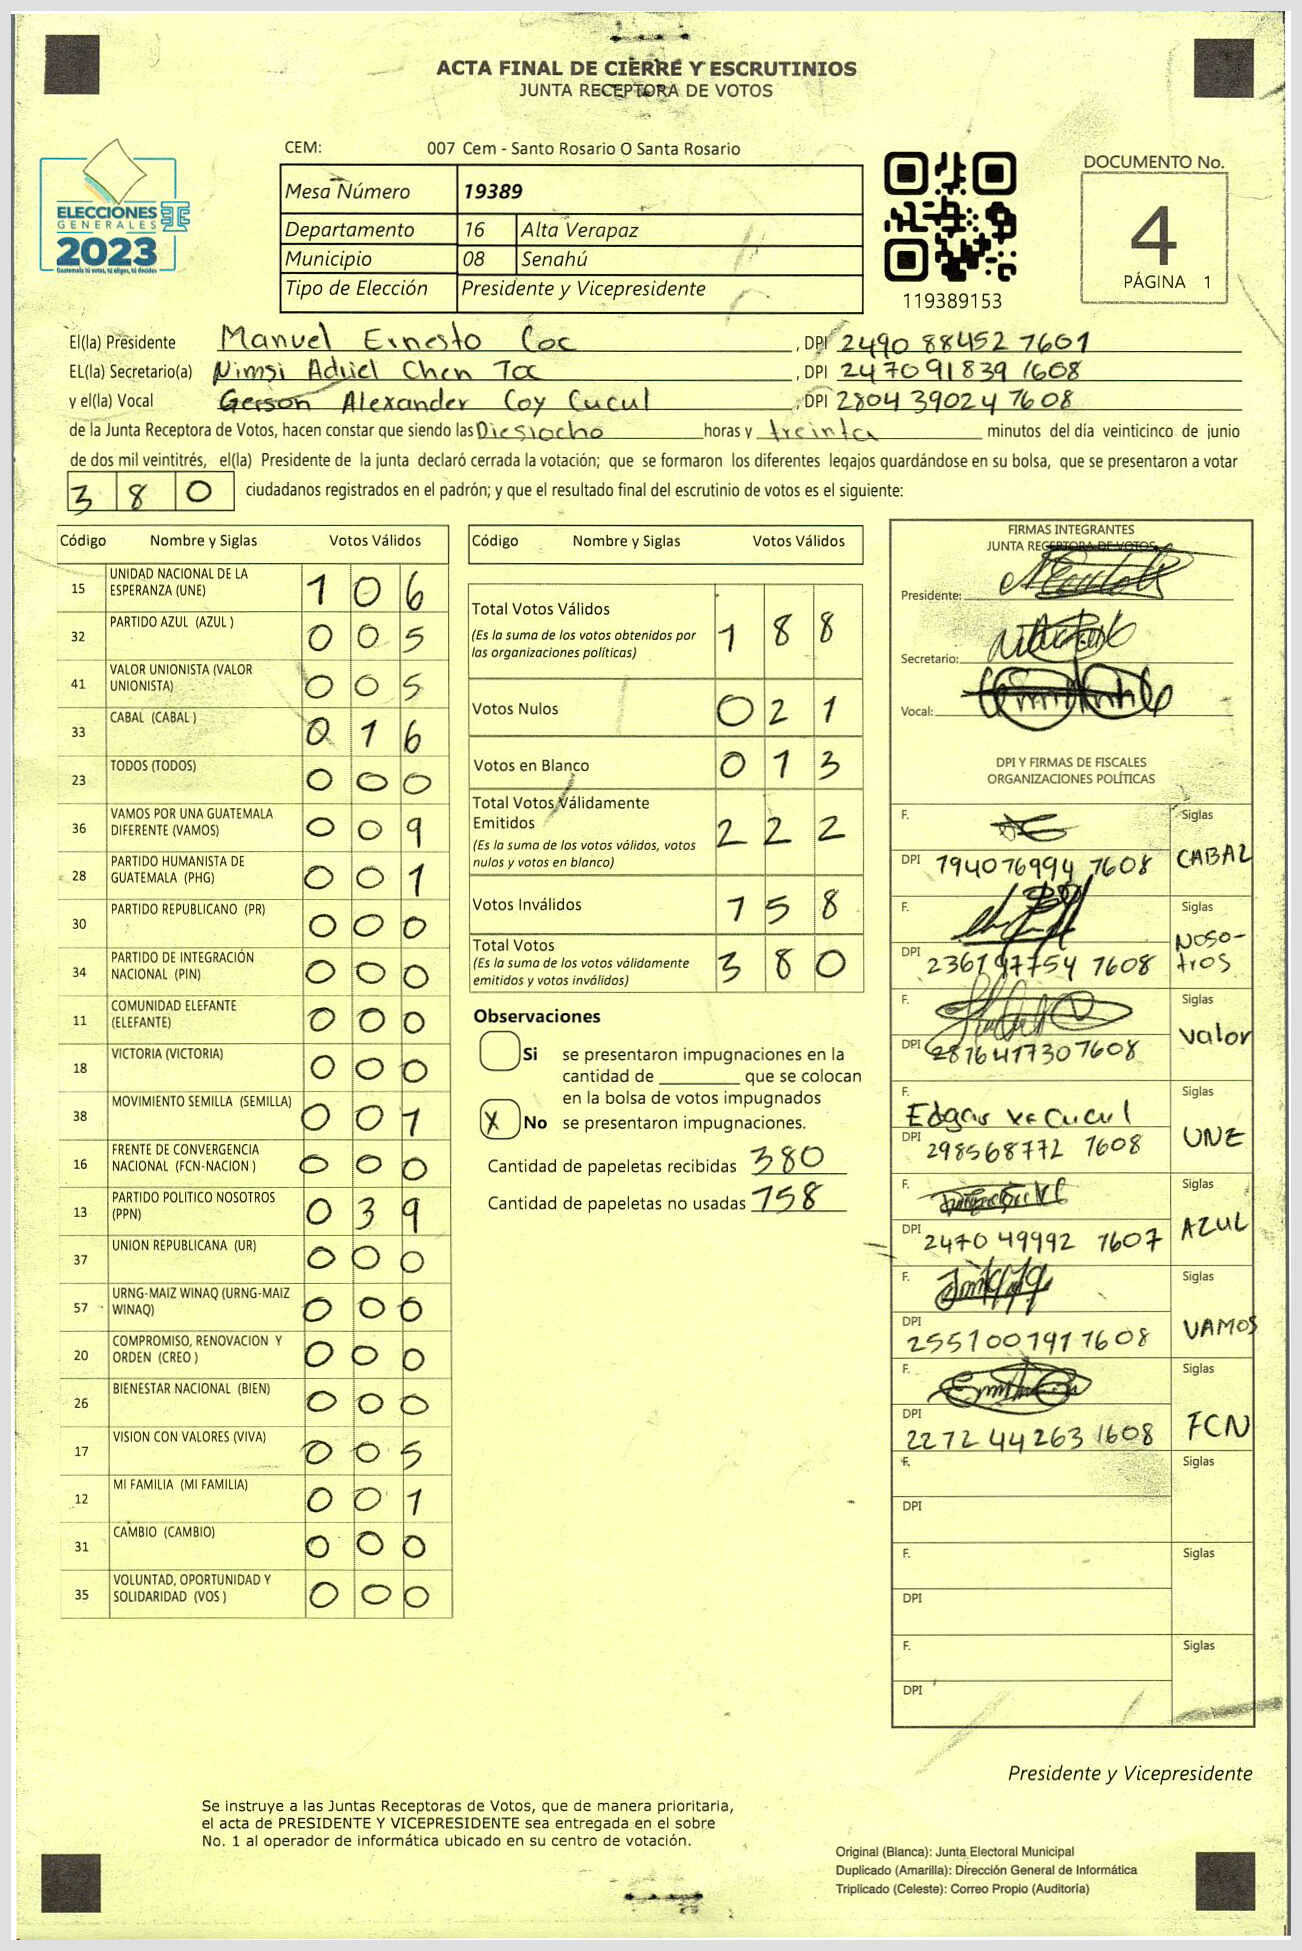 ACTA FINAL DE CIERRE Y ESCRUTINIOS
JUNTA RECEPTORA DE VOTOS
CEM: 007 Cem - Santo Rosario O Santa Rosario
ELECCIONES
GENERALES
2023
Guatemala tú votas, tú eliges, tú decides
Mesa Número 19389
Departamento 16 Alta Verapaz
Municipio 08 Senahú
Tipo de Elección Presidente y Vicepresidente
119389153
DOCUMENTO No.
4
PÁGINA 1
El(la) Presidente Manuel Ernesto Coc , DPI 2490 88452 7601
EL(la) Secretario(a) Nimsi Adiel Chen Toc , DPI 2470 91839 1608
y el(la) Vocal Gerson Alexander Coy Cucul , DPI 2804 39024 7608
de la Junta Receptora de Votos, hacen constar que siendo las Diesiocho horas y treinta minutos del día veinticinco de junio
de dos mil veintitrés, el(la) Presidente de la junta declaró cerrada la votación; que se formaron los diferentes legajos guardándose en su bolsa, que se presentaron a votar
380 ciudadanos registrados en el padrón; y que el resultado final del escrutinio de votos es el siguiente:
Código Nombre y Siglas Votos Válidos
15 UNIDAD NACIONAL DE LA ESPERANZA (UNE) 106
32 PARTIDO AZUL (AZUL ) 005
41 VALOR UNIONISTA (VALOR UNIONISTA) 005
33 CABAL (CABAL ) 016
23 TODOS (TODOS) 000
36 VAMOS POR UNA GUATEMALA DIFERENTE (VAMOS) 009
28 PARTIDO HUMANISTA DE GUATEMALA (PHG) 001
30 PARTIDO REPUBLICANO (PR) 000
34 PARTIDO DE INTEGRACIÓN NACIONAL (PIN) 000
11 COMUNIDAD ELEFANTE (ELEFANTE) 000
18 VICTORIA (VICTORIA) 000
38 MOVIMIENTO SEMILLA (SEMILLA) 001
16 FRENTE DE CONVERGENCIA NACIONAL (FCN-NACION ) 000
13 PARTIDO POLITICO NOSOTROS (PPN) 039
37 UNION REPUBLICANA (UR) 000
57 URNG-MAIZ WINAQ (URNG-MAIZ WINAQ) 000
20 COMPROMISO, RENOVACION Y ORDEN (CREO ) 000
26 BIENESTAR NACIONAL (BIEN) 000
17 VISION CON VALORES (VIVA) 005
12 MI FAMILIA (MI FAMILIA) 001
31 CAMBIO (CAMBIO) 000
35 VOLUNTAD, OPORTUNIDAD Y SOLIDARIDAD (VOS ) 000
Código Nombre y Siglas Votos Válidos
Total Votos Válidos 188
(Es la suma de los votos obtenidos por
las organizaciones políticas)
Votos Nulos 021
Votos en Blanco 013
Total Votos Válidamente
Emitidos 222
(Es la suma de los votos válidos, votos
nulos y votos en blanco)
Votos Inválidos 158
Total Votos 380
(Es la suma de los votos válidamente
emitidos y votos inválidos)
Observaciones
Si se presentaron impugnaciones en la
cantidad de ________ que se colocan
en la bolsa de votos impugnados
X No se presentaron impugnaciones.
Cantidad de papeletas recibidas 380
Cantidad de papeletas no usadas 158
FIRMAS INTEGRANTES
JUNTA RECEPTORA DE VOTOS
Presidente:
Secretario:
Vocal:
DPI Y FIRMAS DE FISCALES
ORGANIZACIONES POLÍTICAS
F. Siglas
DPI 194076994 7608 CABAL
F. Siglas
DPI 236197754 7608 NOSO-tros
F. Siglas
DPI 281641730 7608 Valor
F. Edgar Cucul Siglas
DPI 298568772 7608 UNE
F. Siglas
DPI 2470 49992 1607 AZUL
F. Siglas
DPI 255100791 7608 VAMOS
F. Siglas
DPI 2272 44263 1608 FCN
F. Siglas
DPI
F. Siglas
DPI
F. Siglas
DPI
Presidente y Vicepresidente
Se instruye a las Juntas Receptoras de Votos, que de manera prioritaria,
el acta de PRESIDENTE Y VICEPRESIDENTE sea entregada en el sobre
No. 1 al operador de informática ubicado en su centro de votación.
Original (Blanca): Junta Electoral Municipal
Duplicado (Amarilla): Dirección General de Informática
Triplicado (Celeste): Correo Propio (Auditoría)